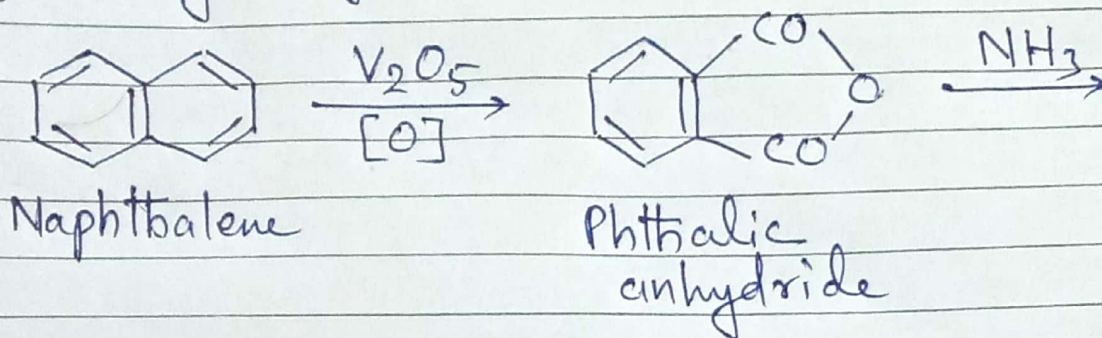 V2O5
[O]
CO
O
CO
NH3
Naphthalene
Phthalic
anhydride